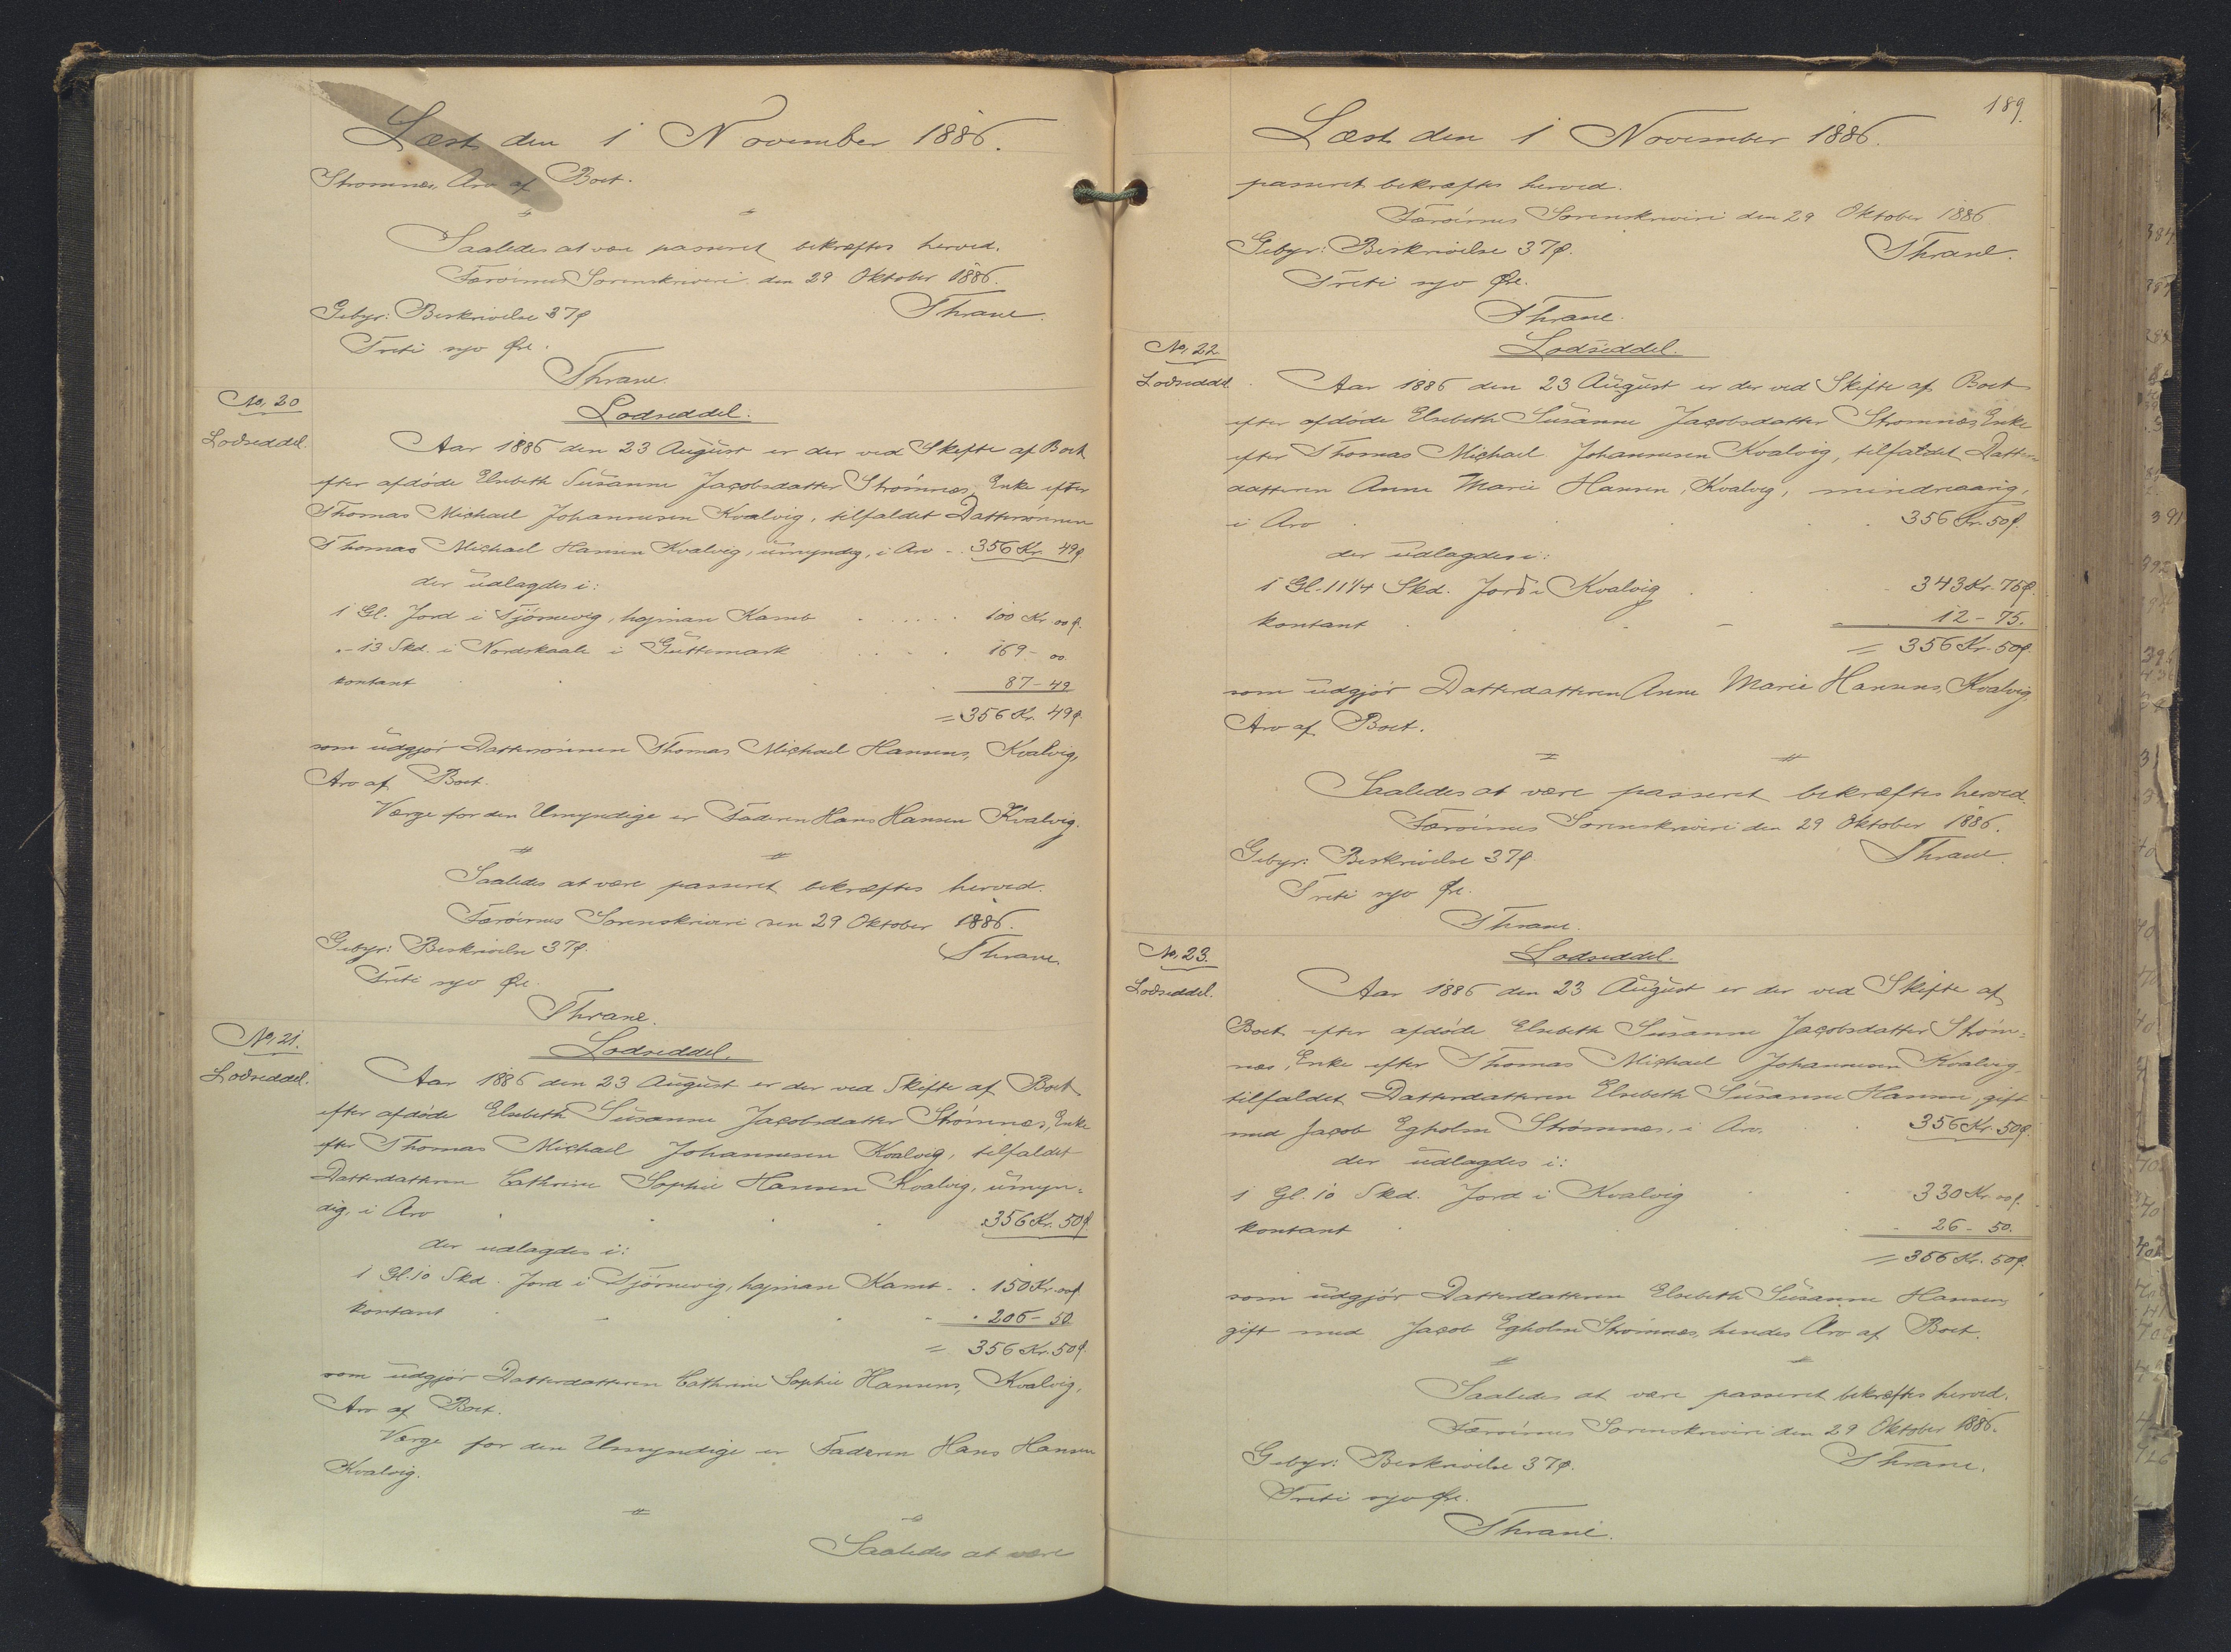 Læst den 1 November 1886.
Strømnæs, Arv af Boet.
Saaledes at være passeret bekræftes herved.
Færøernes Sorenskriveri, den 29 Oktober 1886.
Gebyr: Beskrivelse 37ø Thrane.
Treti syv Øre.
Thrane.
No, 20 Lodseddel.
Lodseddel. Aar 1886 den 23 August er der ved Skifte af Boet
efter afdøde Elsebeth Susanne Jacobsdatter Strømnæs, Enke efter
Thomas Michael Johannesen Kvalvig, tilfaldet Dattersønnen
Thomas Michael Hansen Kvalvig, umyndig, i Arv - 356 Kr. 49ø.
der udlagdes i:
1 Gl. Jord i Tjørnevig, hajman Kamb 100 Kr 00ø.
"- 13 Skd. i Nordskaale i Guttemark 169- 00.
kontant 87-49
= 356 Kr. 49ø.
som udgjør Dattersønnen Thomas Michael Hansens, Kvalvig,
Arv af Boet.
Værge for den Umyndige er Faderen Hans Hansen Kvalvig.
Saaledes at være passeret bekræftes herved.
Færøernes Sorenskriveri den 29 Oktober 1886.
Gebyr: Beskrivelse 37ø. Thrane.
Treti syv Øre.
Thrane.
No, 21. Lodseddel.
Lodseddel. Aar 1886 den 23 August er der ved Skifte af Boet
efter afdøde Elsebeth Susanne Jacobsdatter Strømnæs, Enke
efter Thomas Michael Johannesen Kvalvig, tilfaldet
Datterdatteren Cathrine Sophie Hansen Kvalvig, umyn=
dig, i Arv 356 Kr. 50ø.
der udlagdes i:
1 Gl. 10 Skd. Jord i Tjørnevig, hajman Kamb - 150 Kr. 00ø
kontant 206- 50
= 356 Kr. 50ø.
som udgjør Datterdatteren Cathrine Sophie Hansens, Kvalvig,
Arv af Boet.
Værge for den Umyndige er Faderen Hans Hansen
Kvalvig.
Saaledes at være
189.
Læst den 1 November 1886.
passeret bekræftes herved.
Færøernes Sorenskriveri den 29 Oktober 1886
Gebyr: Beskrivelse 37ø. Thrane.
Treti syv Øre.
Thrane.
No, 22 Lodseddel.
Lodseddel. Aar 1886 den 23 August er der ved Skifte af Boet
efter afdøde Elsebeth Susanne Jacobsdatter Strømnæs, Enke
efter Thomas Michael Johannesen Kvalvig, tilfaldet Datter
datteren Anne Marie Hansen, Kvalvig, mindreaarig,
i Arv 356 Kr. 50ø.
der udlagdes i:
1 Gl. 11 1/4 Skd. Jord i Kvalvig 343 Kr. 75ø.
kontant 12 - 75.
= 356 Kr. 50ø.
som udgjør Datterdatteren Anne Marie Hansens, Kvalvig,
Arv af Boet.
Saaledes at være passeret bekræftes herved.
Færøernes Sorenskriveri den 29 Oktober 1886.
Gebyr: Beskrivelse 37ø Thrane.
Treti syv Øre.
Thrane.
No, 23. Lodseddel.
Lodseddel. Aar 1886 den 23 August er der ved Skifte af
Boet efter afdøde Elsebeth Susanne Jacobsdatter Strøm=
næs, Enke efter Thomas Michael Johannesen Kvalvig,
tilfaldet Datterdatteren Elsebeth Susanne Hansen, gift
med Jacob Egholm Strømnæs, i Arv. 356 Kr. 50ø.
der udlagdes i:
1 Gl. 10 Skd. Jord i Kvalvig 330 Kr. 00ø.
kontant 26 - 50.
= 356 Kr. 50ø.
som udgjør Datterdatteren Elsebeth Susanne Hansen,
gift med Jacob Egholm Strømnæs, hendes Arv af Boet.
Saaledes at være passeret bekræftes herved.
Færøernes Sorenskriveri den 29 Oktober 1886.
Gebyr: Beskrivelse 37ø. Thrane.
Treti syv Øre.
Thrane.